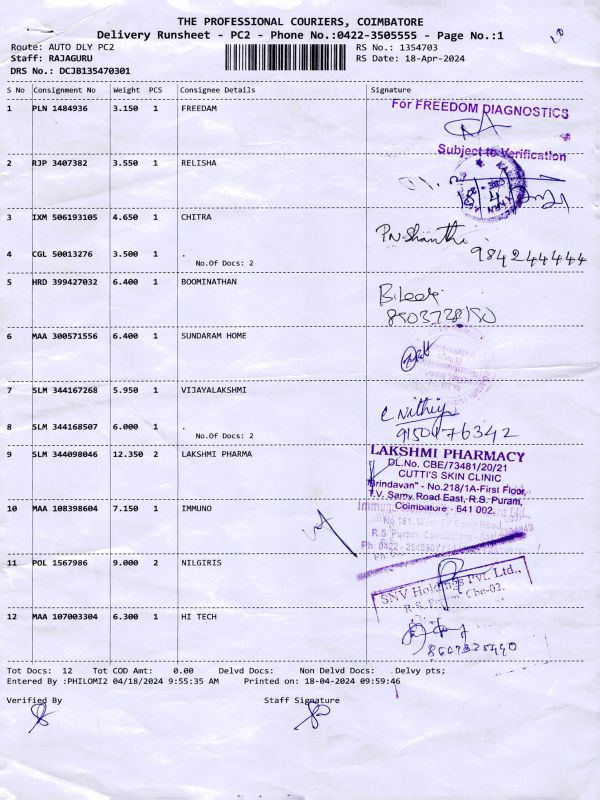 THE PROFESSIONAL COURIERS, COIMBATORE
Delivery Runsheet - PC2 - Phone No.:0422-3505555 - Page No.:1
Route: AUTO DLY PC2
Staff: RAJAGURU
DRS No.: DCJB135470301
RS No.: 1354703
RS Date: 18-Apr-2024
S No Consignment No Weight PCS Consignee Details Signature
1 PLN 1484936 3.150 1 FREEDAM
For FREEDOM DIAGNOSTICS
Subject to Verification
2 RJP 3407382 3.550 1 RELISHA
3 IXM 506193105 4.650 1 CHITRA
PN Shanthi
984244444
4 CGL 50013276 3.500 1 .
No.Of Docs: 2
5 HRD 399427032 6.400 1 BOOMINATHAN
6 MAA 300571556 6.400 1 SUNDARAM HOME
7 SLM 344167268 5.950 1 VIJAYALAKSHMI
C Nithiya
9150476342
8 SLM 344168507 6.000 1 .
No.Of Docs: 2
9 SLM 344098046 12.350 2 LAKSHMI PHARMA
LAKSHMI PHARMACY
DL.No. CBE/73481/20/21
CUTTI'S SKIN CLINIC
"Brindavan" - No.218/1A-First Floor,
T.V. Samy Road East, R.S. Puram,
Coimbatore - 641 002.
10 MAA 108398604 7.150 1 IMMUNO
11 POL 1567986 9.000 2 NILGIRIS
SNV Holdings Pvt. Ltd.,
R.S. Puram, Cbe-02.
12 MAA 107003304 6.300 1 HI TECH
Tot Docs: 12 Tot COD Amt: 0.00 Delvd Docs: Non Delvd Docs: Delvy pts;
Entered By :PHILOMI2 04/18/2024 9:55:35 AM Printed on: 18-04-2024 09:59:46
Verified By Staff Signature